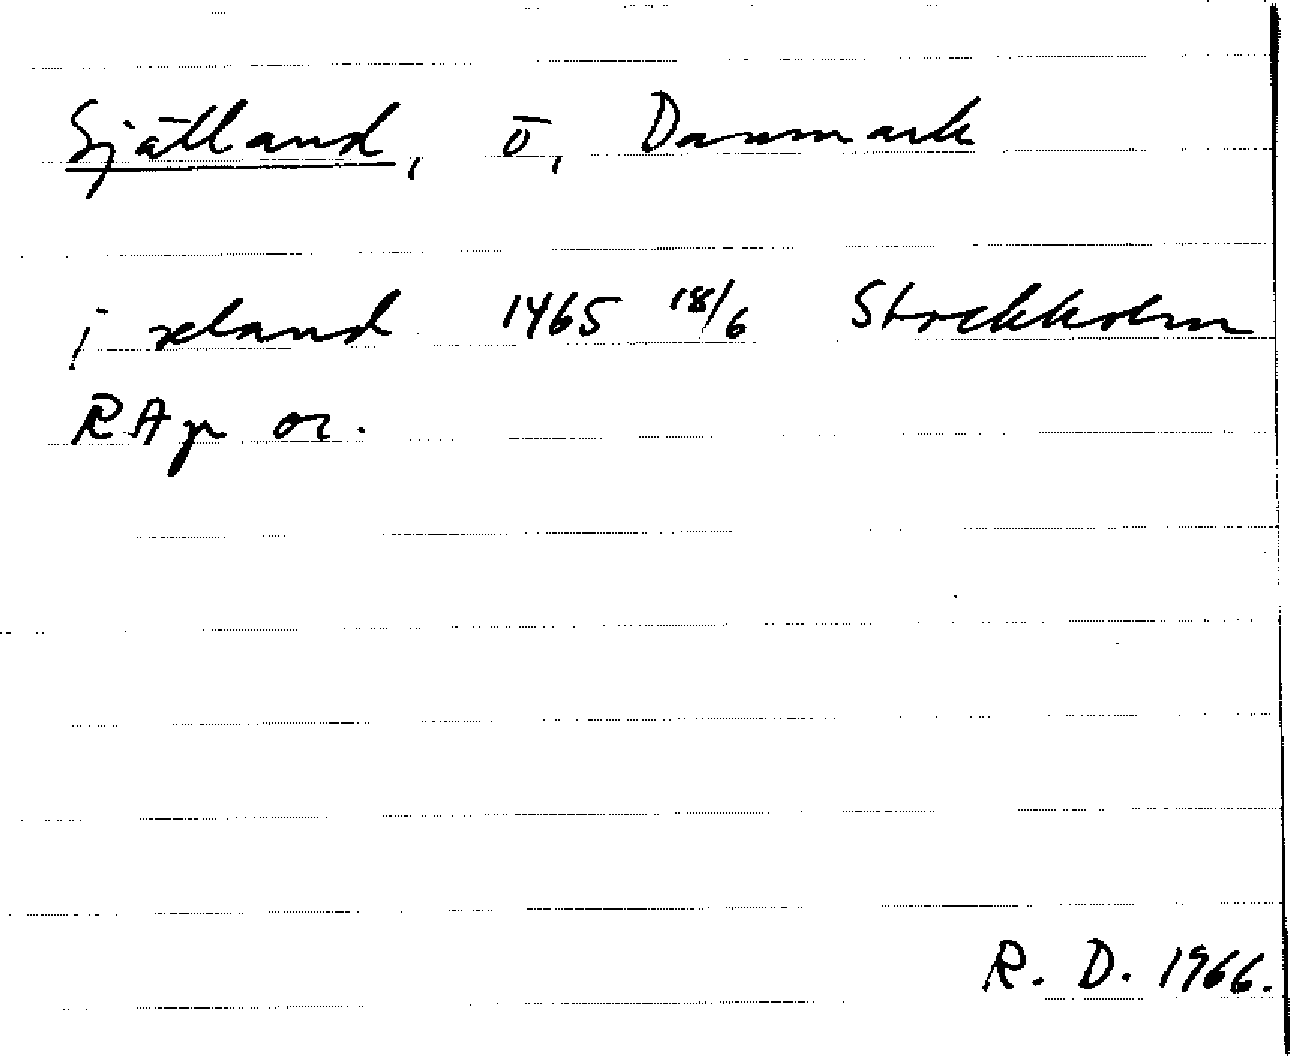 Själland, ö, Danmark
i seland 1465 18/6 Stockholm
RAp or.
R. D. 1966.